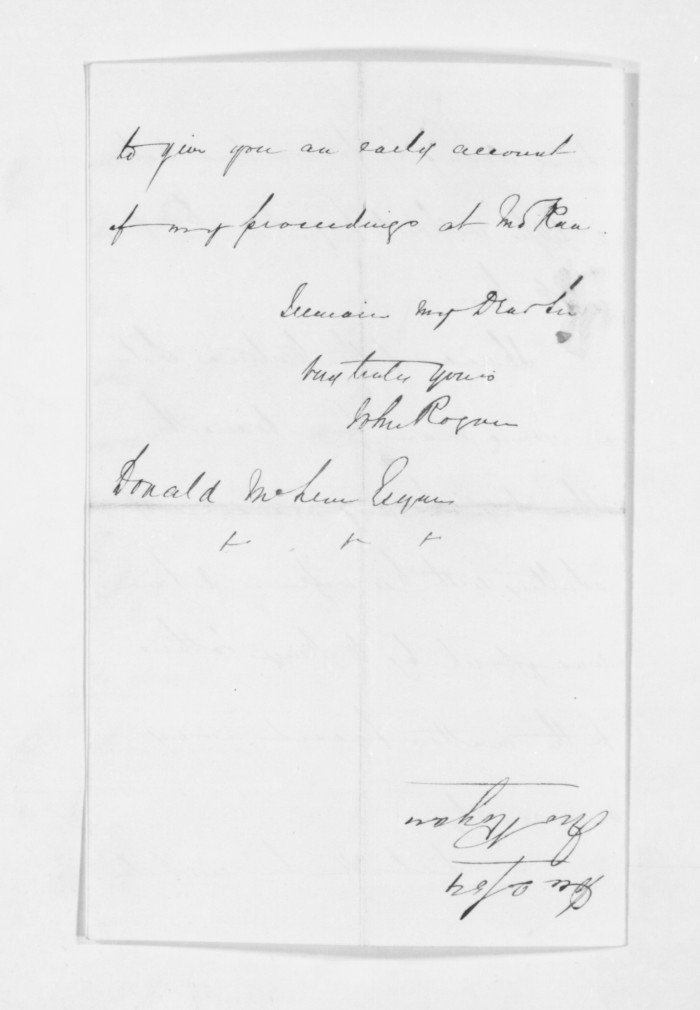 to give you an early account
of my proceedings at
I remain my Dear Sir
Very truly yours
John Rogan
Donald McLean Esquire
Jno Rogan